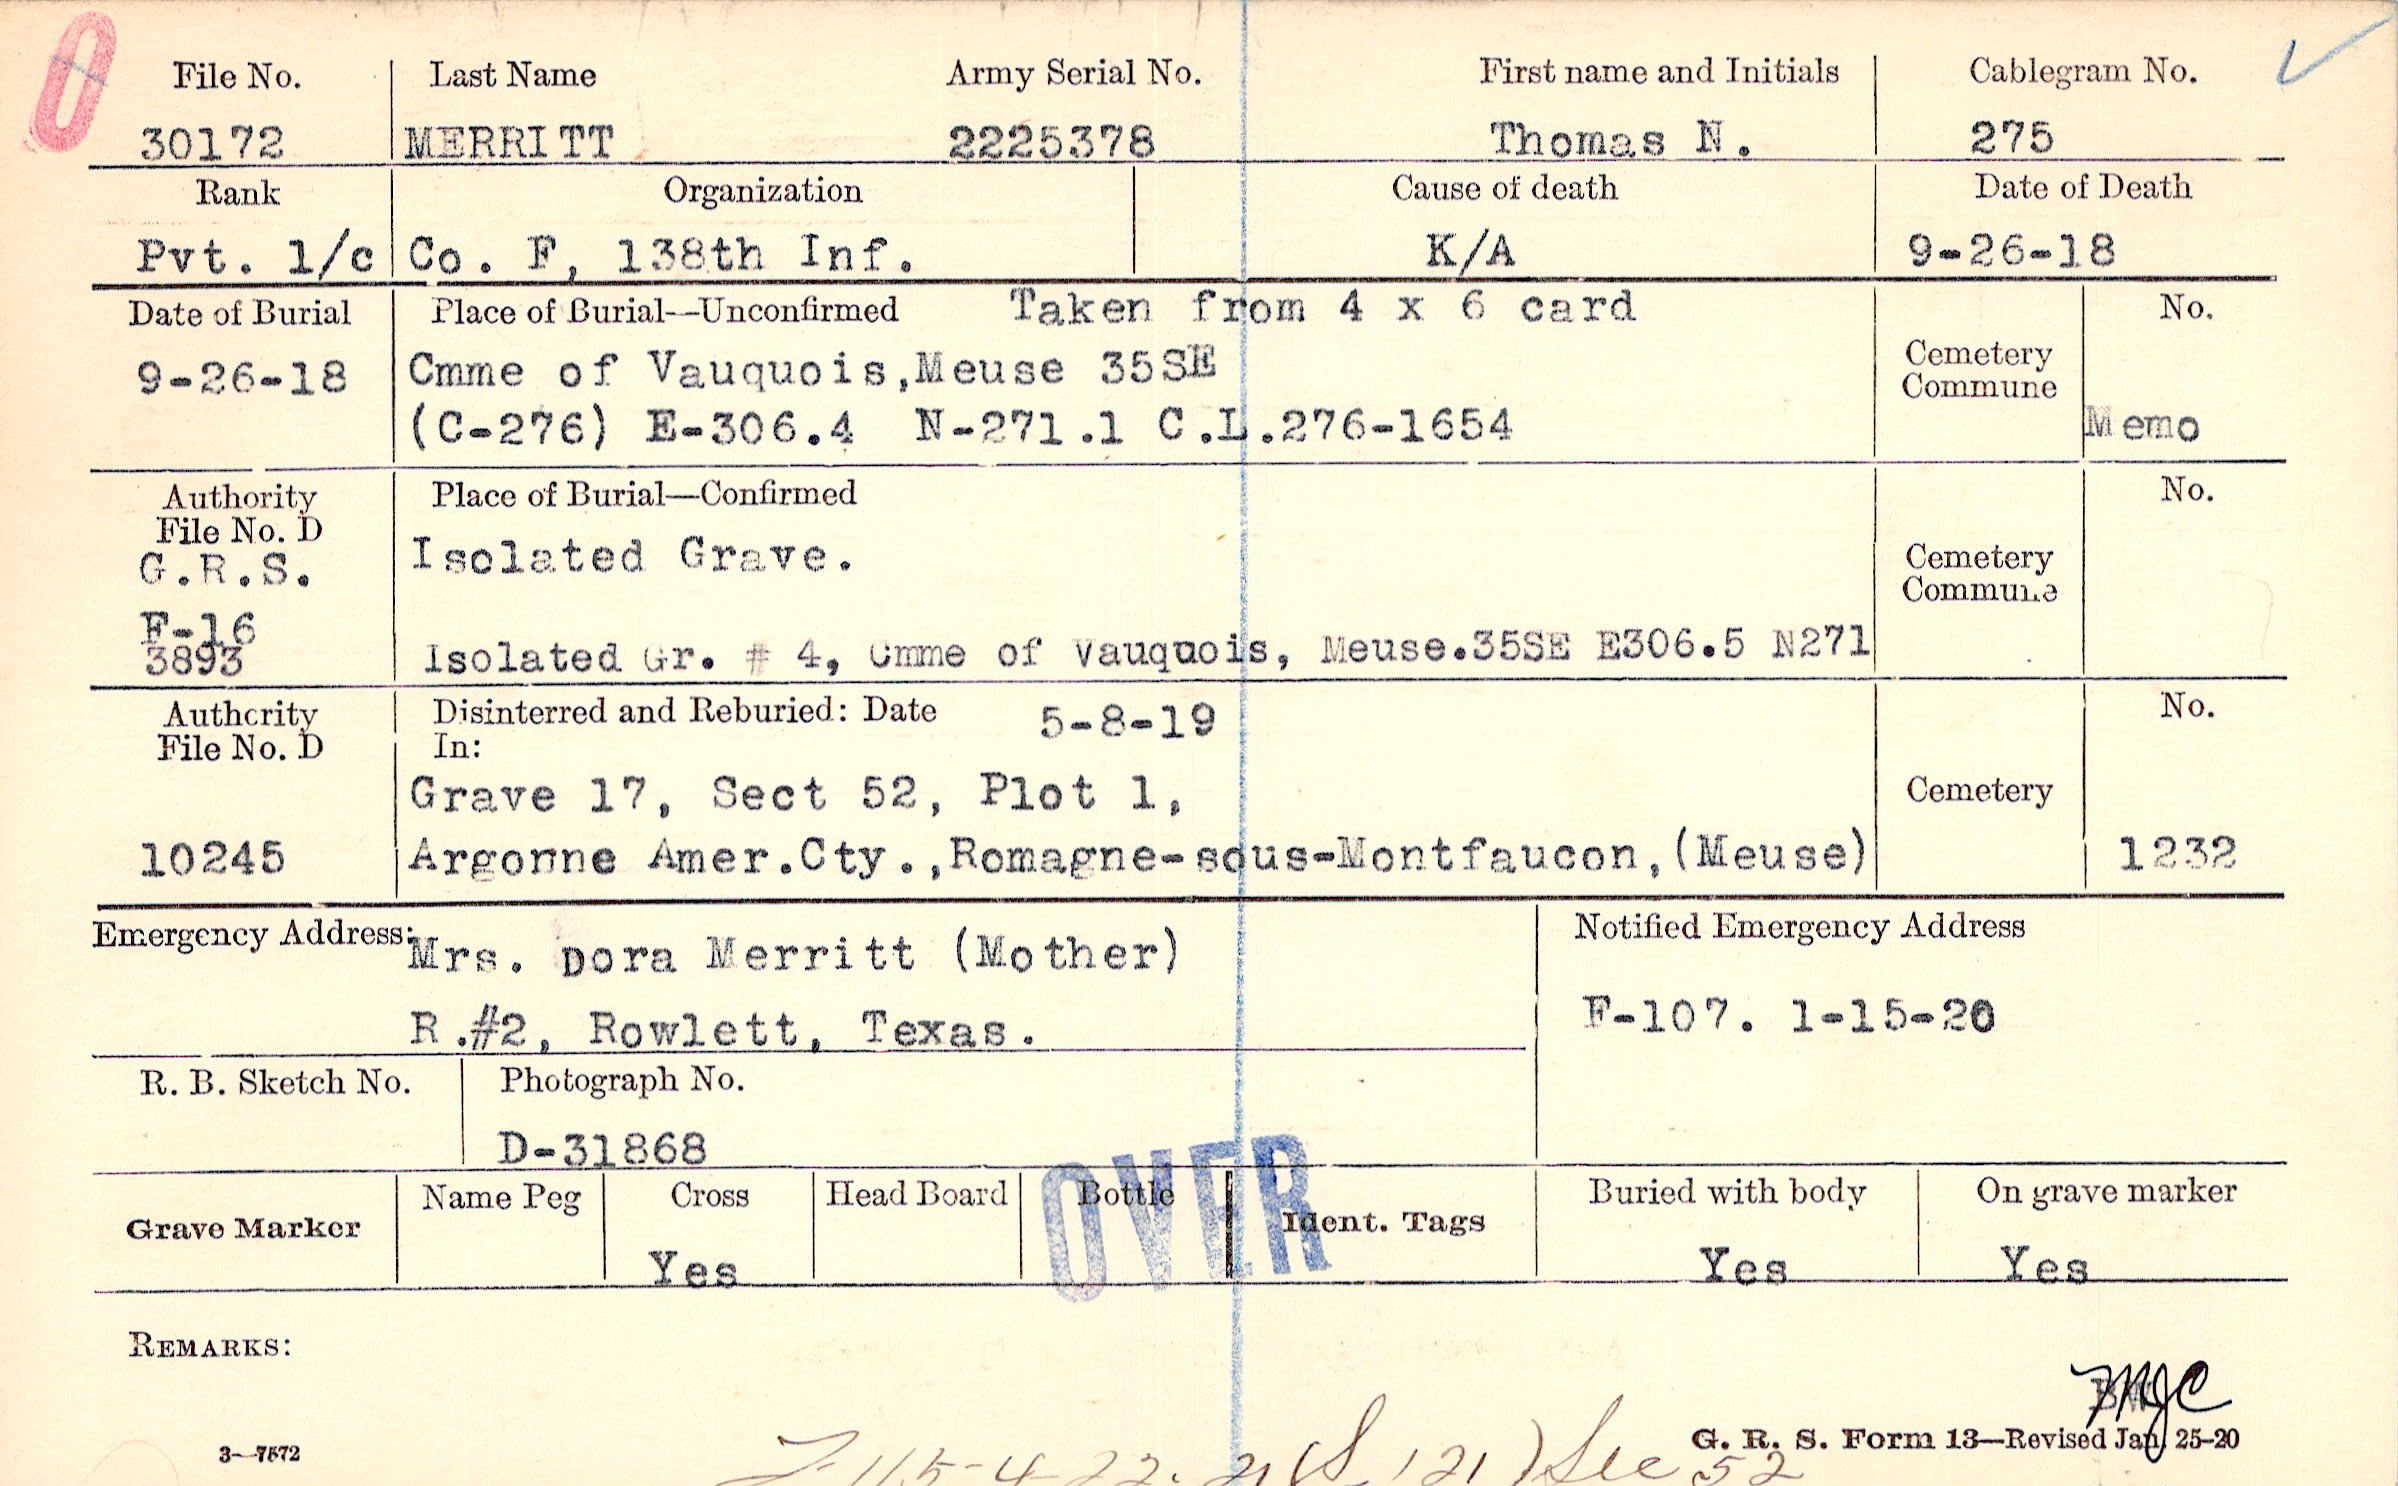 0
File No. Last Name Army Serial No. First name and Initials Cablegram No.
30172 MERRITT 2225378 Thomas N. 275
Rank Organization Cause of death Date of Death
Pvt. 1/c Co. F, 138th Inf. K/A 9-26-18
Date of Burial Place of Burial--Unconfirmed Taken from 4 x 6 card No.
9-26-18 Cmme of Vauquois,Meuse 35SE Cemetery
Commune
(C-276) E-306.4 N-271.1 C.L.276-1654 Memo
Authority Place of Burial—Confirmed No.
File No. D
G.R.S. Isolated Grave. Cemetery
Commune
F-16
3893 Isolated Gr. # 4, Cmme of Vauquois, Meuse.35SE E306.5 N271
Authority Disinterred and Reburied: Date 5-8-19 No.
File No. D In:
Grave 17, Sect 52, Plot 1, Cemetery
10245 Argonne Amer.Cty.,Romagne-sous-Montfaucon,(Meuse) 1232
Emergency Address: Mrs. Dora Merritt (Mother) Notified Emergency Address
R.#2, Rowlett, Texas. F-107. 1-15-20
R. B. Sketch No. Photograph No.
D-31868
OVER
Grave Marker Name Peg Cross Head Board Bottle Ident. Tags Buried with body On grave marker
Yes Yes Yes
REMARKS:
MJC
3—7572 G. R. S. Form 13—Revised Jan. 25-20
115-4-22-21 (S 121) Sec 52